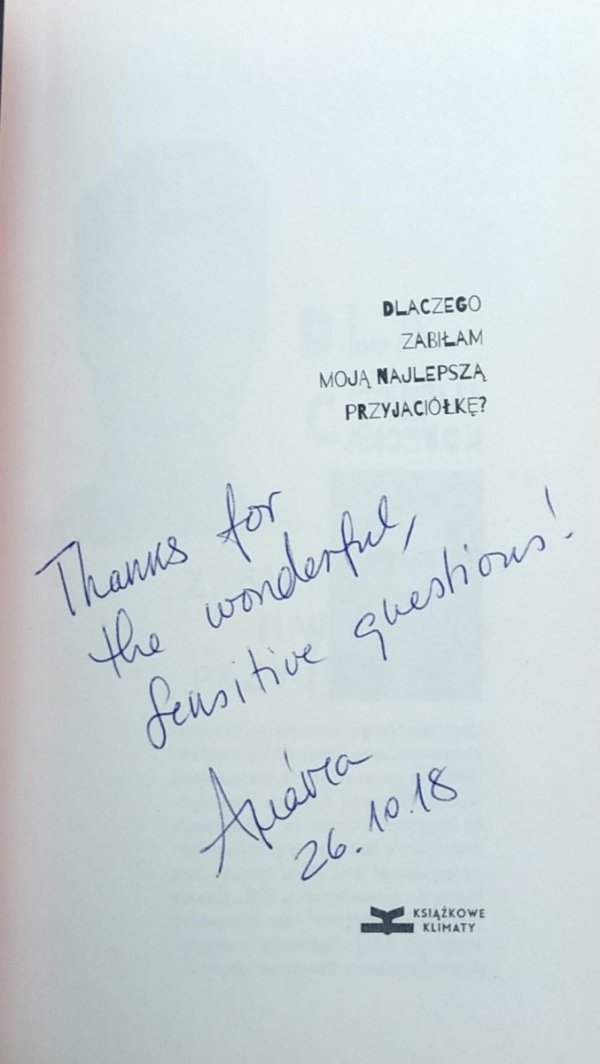 DLACZEGO
ZABIŁAM
MOJĄ NAJLEPSZĄ
PRZYJACIÓŁKĘ?
Thanks for
the wonderful,
sensitive questions!
Αμάντα
26.10.18
KSIĄŻKOWE
KLIMATY